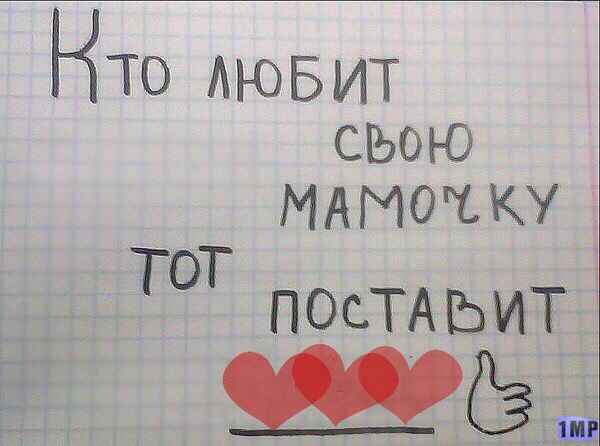 Кто любит
свою
мамочку
тот
поставит
1MP